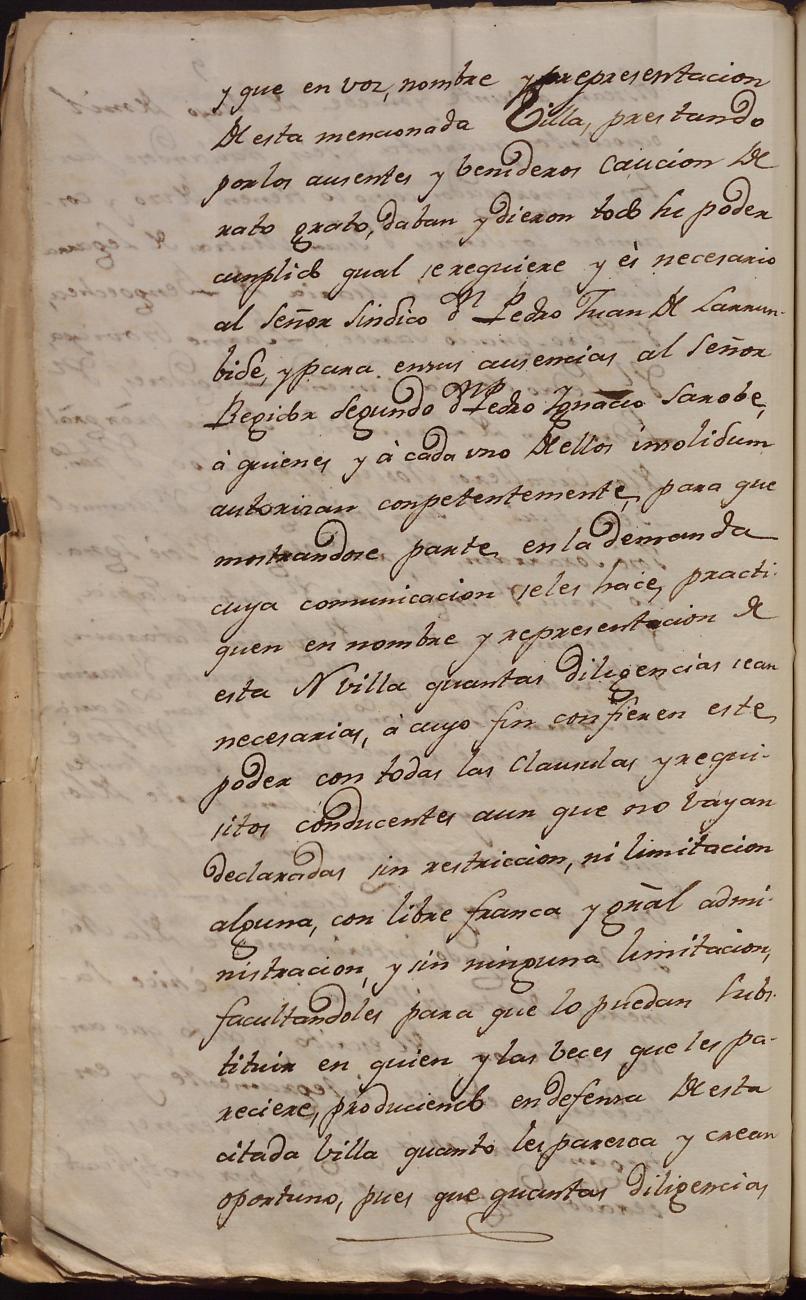 y que en voz, nombre y representacion
de esta mencionada Villa, prestando
por los ausentes y benideros Caucion de
rato grato, daban y dieron todo su poder
cunplido qual se requiere y es necesario
al Señor Sindico Dn Pedro Juan de Larrun-
bide, y para en sus ausencias al Señor
Regidor segundo Dn Pedro Ygnacio Sarobe,
à quienes y à cada uno de ellos insolidum
autorizan conpetentemente, para que
mostrandose parte en la demanda
cuya comunicacion se les hace, practi-
quen en nombre y representacion de
esta N villa quantas diligencias sean
necesarias, à cuyo fin confieren este
poder con todas las Clausulas y requi-
sitos conducentes aun que no bayan
declaradas sin restriccion, ni limitacion
alguna, con libre franca y gñal admi-
nistracion, y sin ninguna limitacion,
facultandoles para que lo puedan subs-
tituir en quien y las veces que les pa-
reciere, produciendo en defensa de esta
citada Villa quanto les paresca y crean
oportuno, pues que quantas diligencias